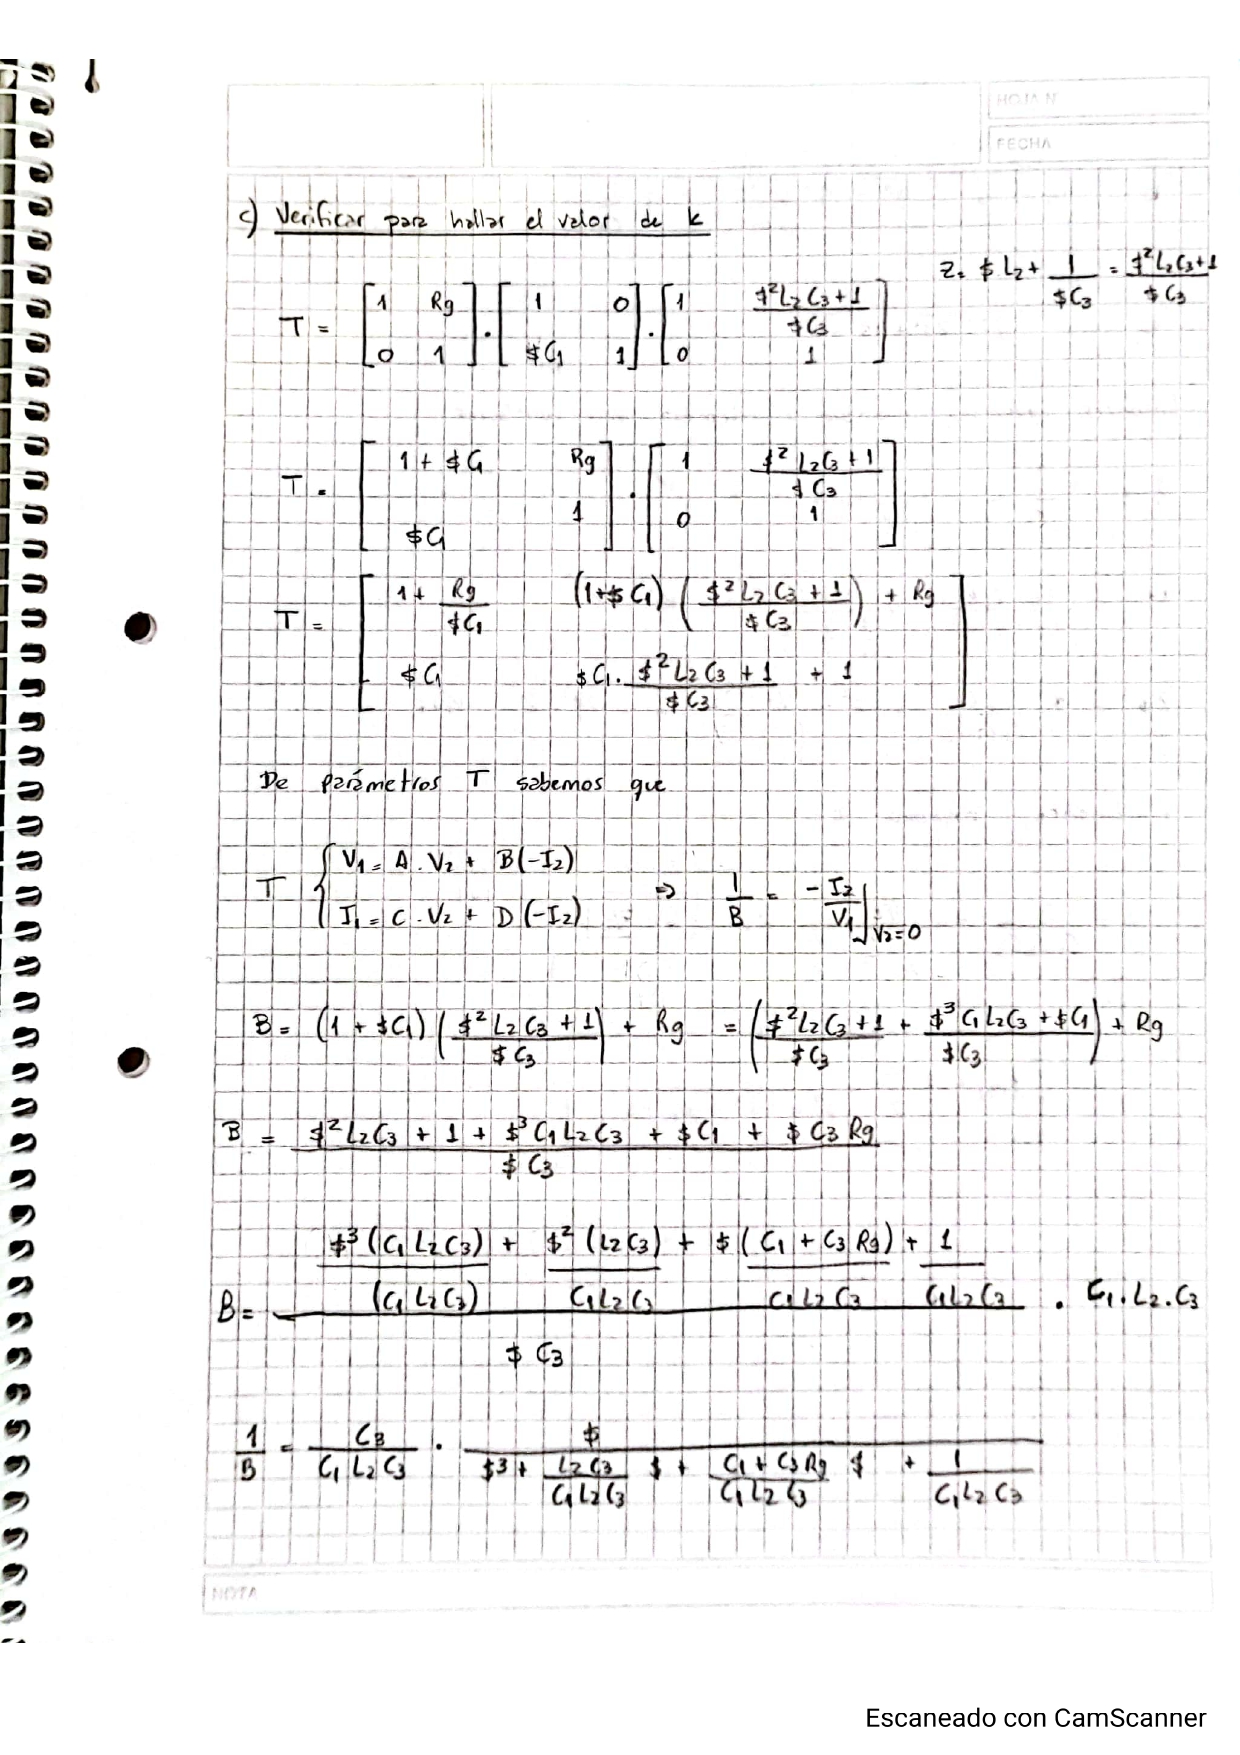 HOJA N°
FECHA
c) Verificar para hallar el valor de k
Z = $ L2 + 1/($ C3) = ($² L2 C3 + 1)/($ C3)
T = [1 Rg; 0 1] · [1 0; $C1 1] · [1 ($² L2 C3 + 1)/($ C3); 0 1]
T = [1 + $C1 Rg; $C1 1] · [1 ($² L2 C3 + 1)/($ C3); 0 1]
T = [1 + Rg/($C1) (1+$ C1) (($² L2 C3 + 1)/($ C3)) + Rg; $C1 $C1 · ($² L2 C3 + 1)/($ C3) + 1]
De parámetros T sabemos que
T { V1 = A . V2 + B(-I2)
I1 = C . V2 + D (-I2) ⇒ 1/B = -I2/V1 |V2=0
B = (1 + $C1) (($² L2 C3 + 1)/($ C3)) + Rg = (($² L2 C3 + 1)/($ C3) + ($³ C1 L2 C3 + $C1)/($C3)) + Rg
B = ($² L2 C3 + 1 + $³ C1 L2 C3 + $ C1 + $ C3 Rg)/($ C3)
B = ($³ (C1 L2 C3)/(C1 L2 C3) + $² (L2 C3)/(C1 L2 C3) + $ (C1 + C3 Rg)/(C1 L2 C3) + 1/(C1 L2 C3))/($ C3) . C1 . L2 . C3
1/B = C3/(C1 L2 C3) . $/($3 + (L2 C3)/(C1 L2 C3) $ + (C1 + C3 Rg)/(C1 L2 C3) $ + 1/(C1 L2 C3))
NOTA
Escaneado con CamScanner